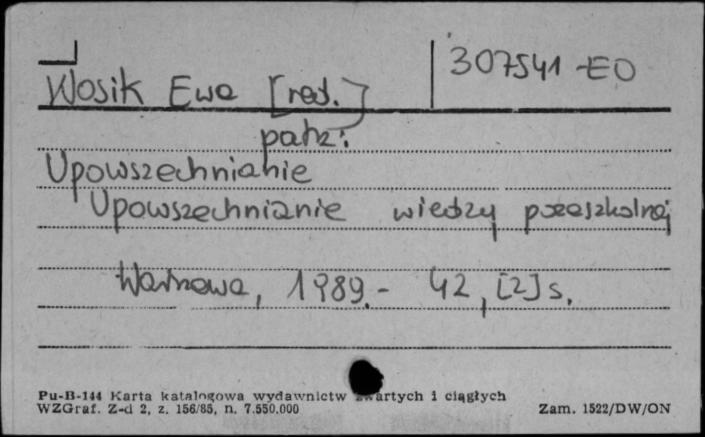 307541-EO
Wosik Ewa [red.]
patrz:
Upowszechnianie
Upowszechnianie wiedzy pozaszkolnej
Warszawa, 1989.- 42, [2] s.
Pu-B-144 Karta katalogowa wydawnictw zwartych i ciągłych
WZGraf. Z-d 2, z. 156/85, n. 7.550.000
Zam. 1522/DW/ON